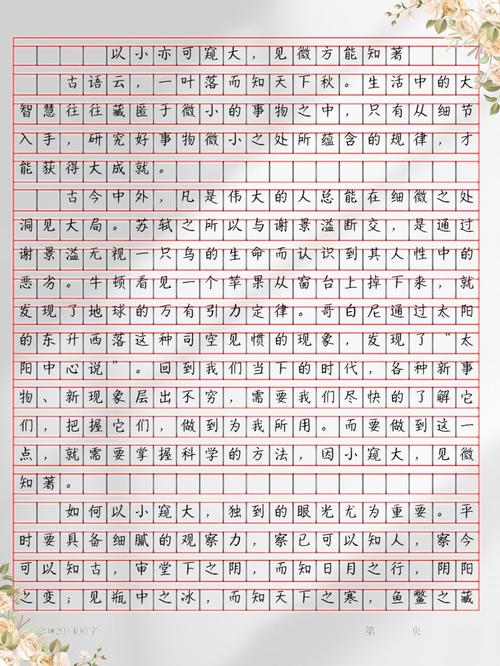 以小亦可窥大,见微方能知著
古语云,一叶落而知天下秋。生活中的大
智慧往往藏匿于微小的事物之中,只有从细节
入手,研究好事物微小之处所蕴含的规律,才
能获得大成就。
古今中外,凡是伟大的人总能在细微之处
洞见大局。苏轼之所以与谢景溢断交,是通过
谢景溢无视一只鸟的生命而认识到其人性中的
恶劣。牛顿看见一个苹果从窗台上掉下来,就
发现了地球的万有引力定律。哥白尼通过太阳
的东升西落这种司空见惯的现象,发现了“太
阳中心说”。回到我们当下的时代,各种新事
物、新现象层出不穷,需要我们尽快的了解它
们,把握它们,做到为我所用。而要做到这一
点,就需要掌握科学的方法,因小窥大,见微
知著。
如何以小窥大,独到的眼光尤为重要。平
时要具备细腻的观察力,察已可以知人,察今
可以知古,审堂下之阴,而知日月之行,阴阳
之变;见瓶中之冰,而知天下之寒,鱼鳖之藏
20*20=400字 第 页